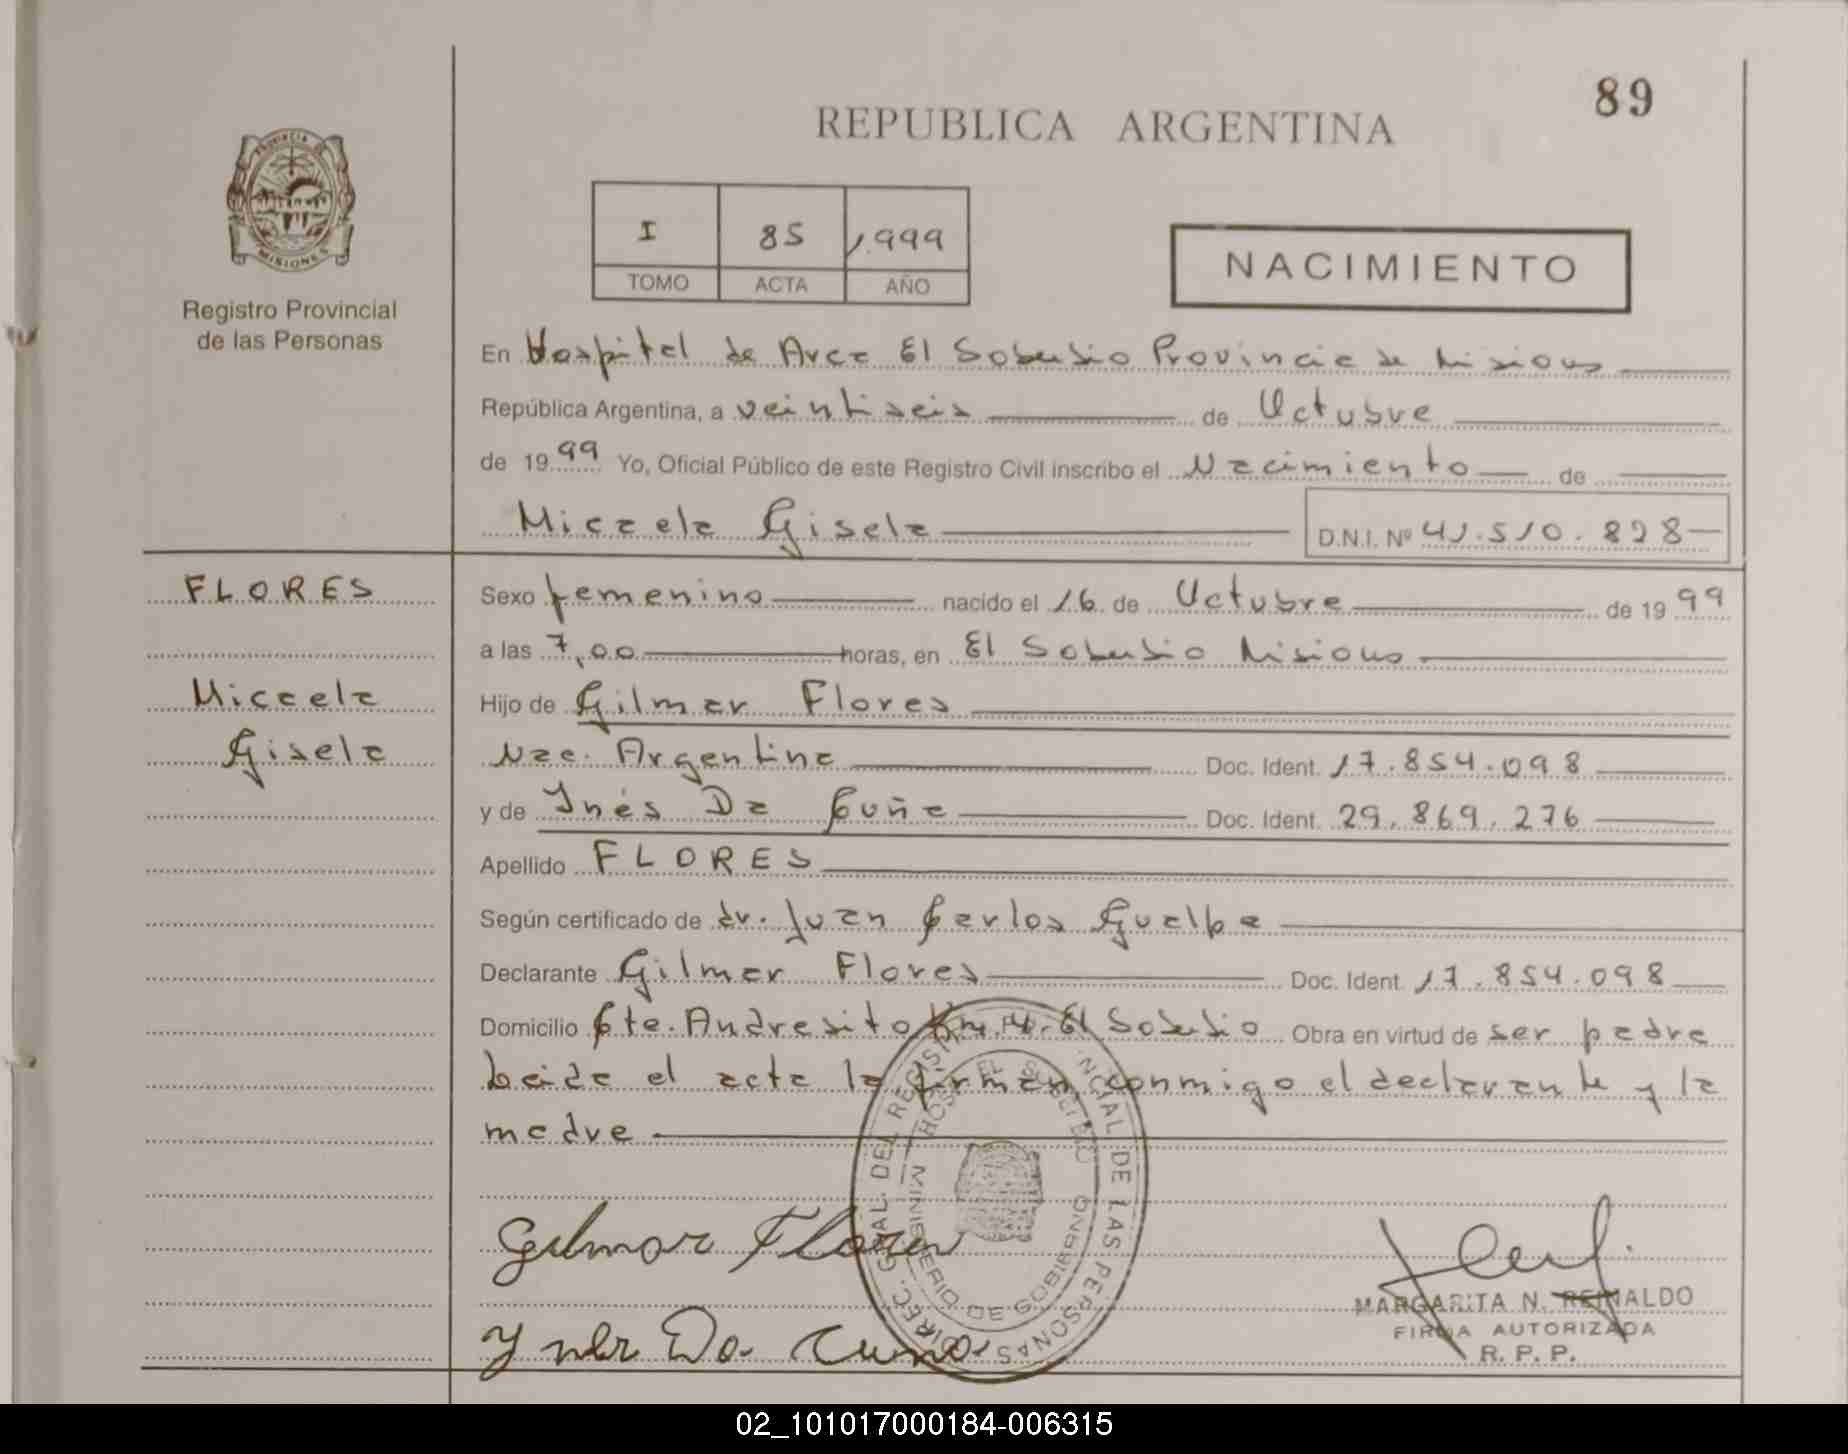 89
REPUBLICA ARGENTINA
PROVINCIA DE
MISIONES
Registro Provincial
de las Personas
I 85 1.999
TOMO ACTA AÑO
NACIMIENTO
En Hospital de Area El Soberbio Provincia de Misiones
República Argentina, a veintiseis de Octubre
de 1999 Yo, Oficial Público de este Registro Civil inscribo el Nacimiento de
Micaela Gisela D.N.I. Nº 41.510.828
FLORES
Micaela
Gisela
Sexo femenino nacido el 16 de Octubre de 1999
a las 7,00 horas, en El Soberbio Misiones
Hijo de Gilmar Flores
Nac. Argentina Doc. Ident. 17.854.098
y de Inés Da Cuña Doc. Ident. 29.869.276
Apellido FLORES
Según certificado de dr. Juan Carlos Gualpa
Declarante Gilmar Flores Doc. Ident. 17.854.098
Domicilio Cte. Andresito Km. El Soberbio Obra en virtud de ser padre
Leida el acta la firman conmigo el declarante y la
madre
Gilmar Flores
Ynes Da Cunha
DIREC. GRAL. DEL REGIST NCIAL DE LAS PERSONAS
HOSP EL SOBERBIO
MINISTERIO DE GOBIERNO
MARGARITA N. REINALDO
FIRMA AUTORIZADA
R. P. P.
02_101017000184-006315